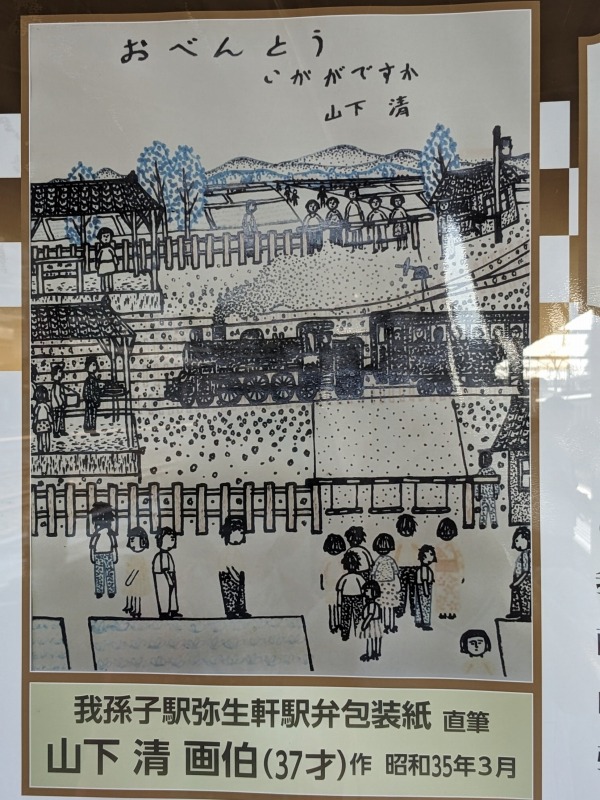 おべんとう
いかがですか
山下 清
我孫子駅弥生軒駅弁包装紙 直筆
山下 清 画伯(37才)作 昭和35年3月